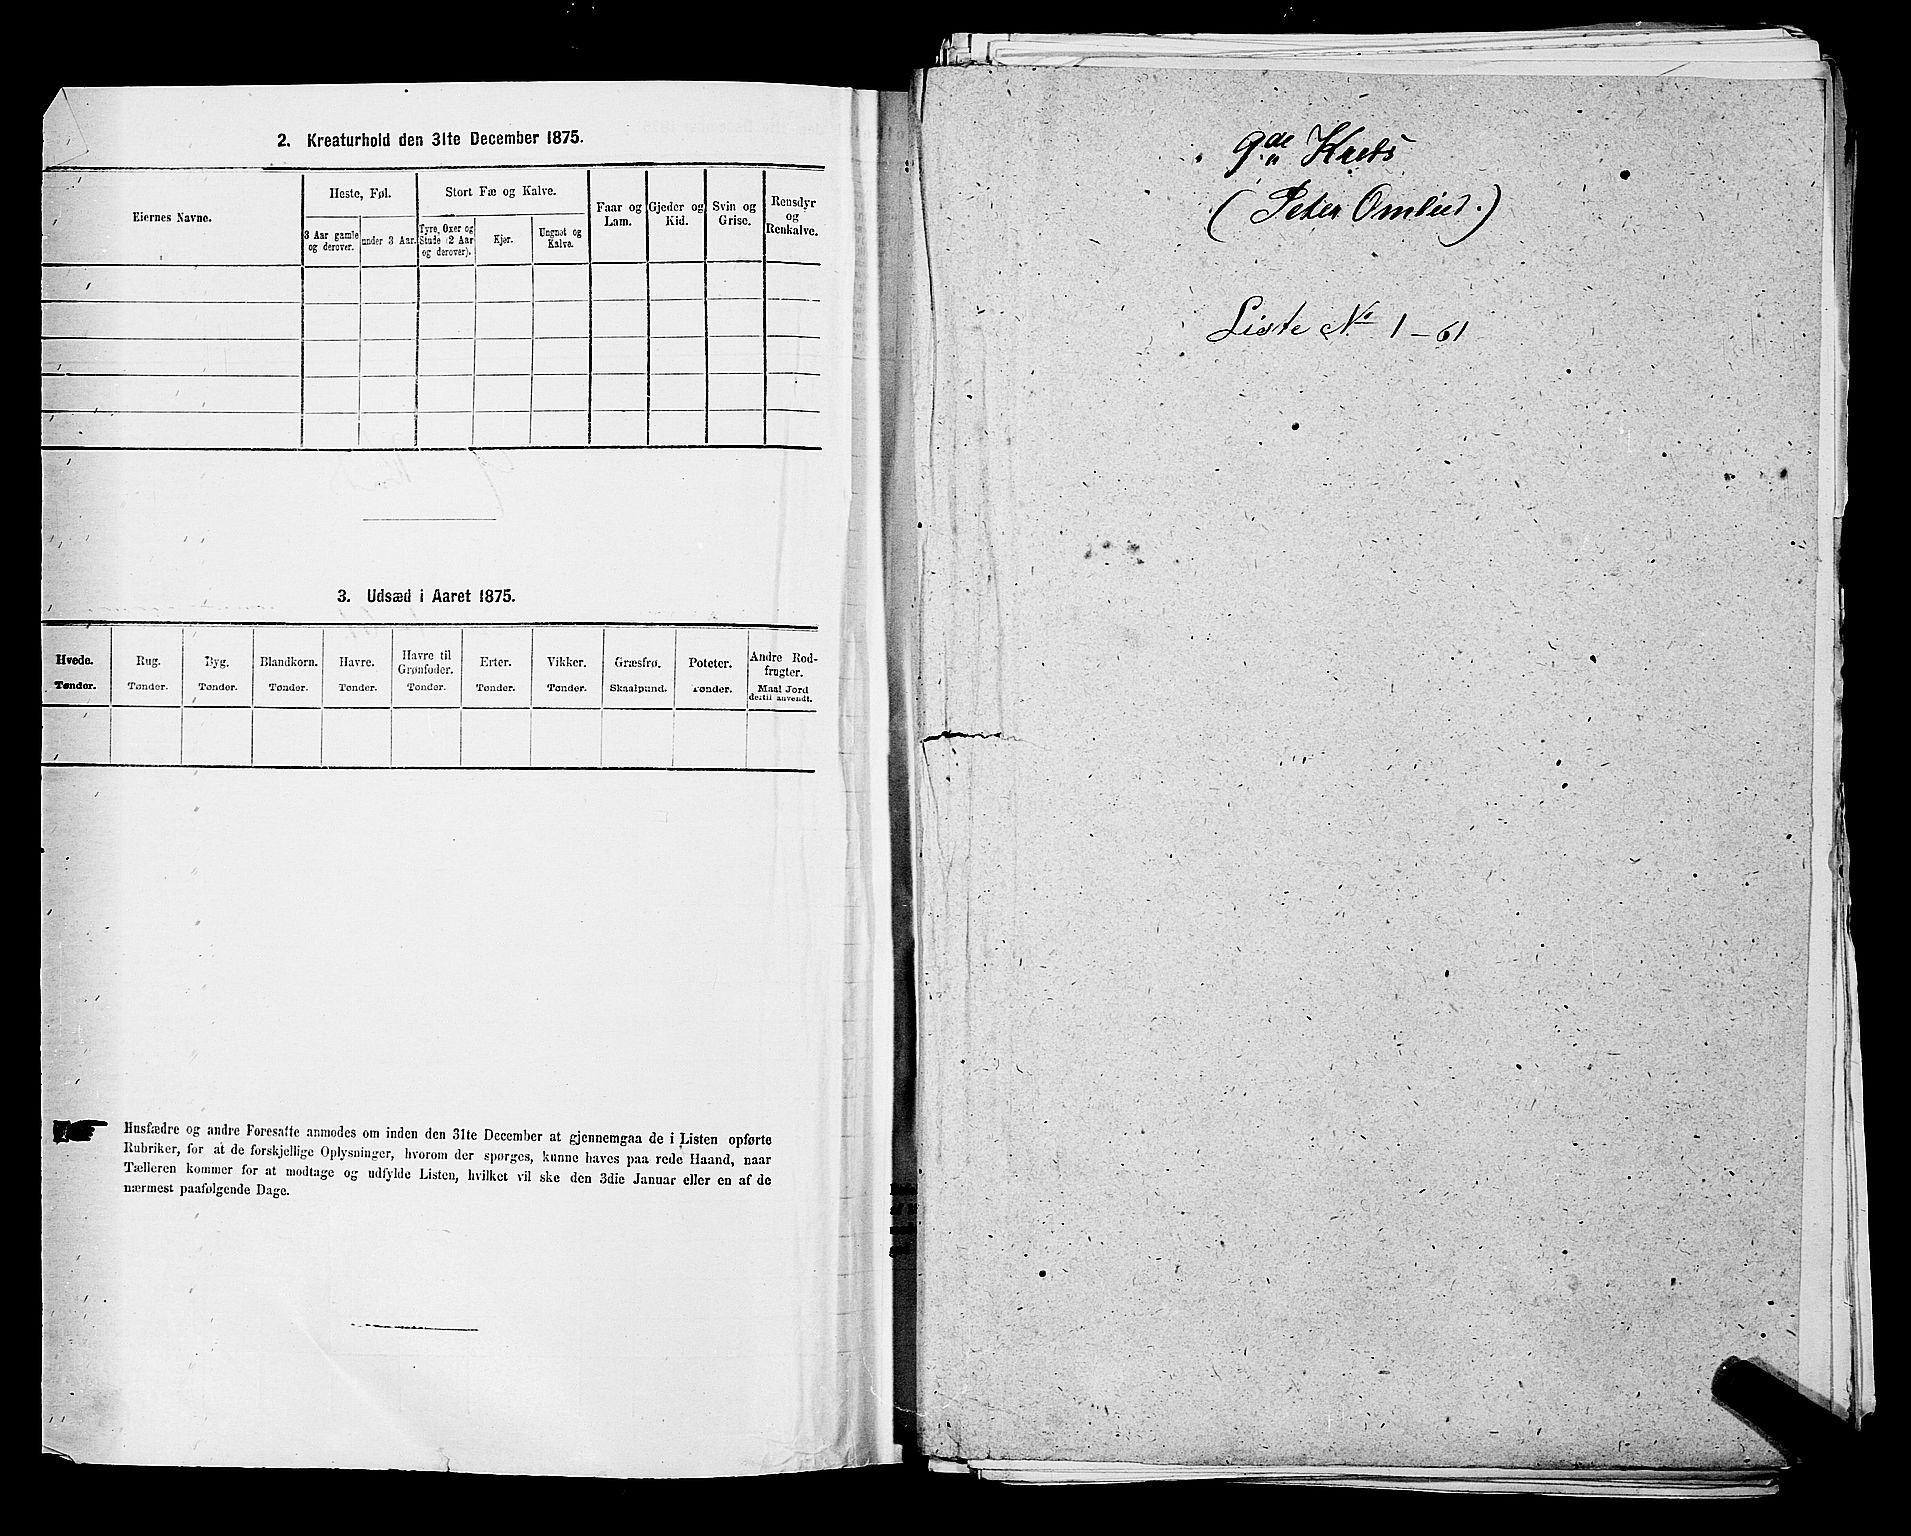 2. Kreaturhold den 31te December 1875.
Eiernes Navne.
Heste, Føl.
Stort Fæ og Kalve.
Faar og Lam.
Gjeder og Kid.
Svin og Grise.
Rensdyr og Renkalve.
3 Aar gamle og derover.
under 3 Aar.
Tyre, Oxer og Stude (2 Aar og derover).
Kjør.
Ungnøt og Kalve.
3. Udsæd i Aaret 1875.
Hvede.
Rug.
Byg.
Blandkorn.
Havre.
Havre til Grønfoder.
Erter.
Vikker.
Græsfrø.
Poteter.
Andre Rodfrugter.
Tønder.
Tønder.
Tønder.
Tønder.
Tønder.
Tønder.
Tønder.
Tønder.
Skaalpund.
Tønder.
Maal Jord dertil anvendt.
Husfædre og andre Foresatte anmodes om inden den 31te December at gjennemgaa de i Listen opførte
Rubriker, for at de forskjellige Oplysninger, hvorom der spørges, kunne haves paa rede Haand, naar
Tælleren kommer for at modtage og udfylde Listen, hvilket vil ske den 3die Januar eller en af de
nærmest paafølgende Dage.
9de Kreds
(Peter Omlid.)
Liste No 1-61